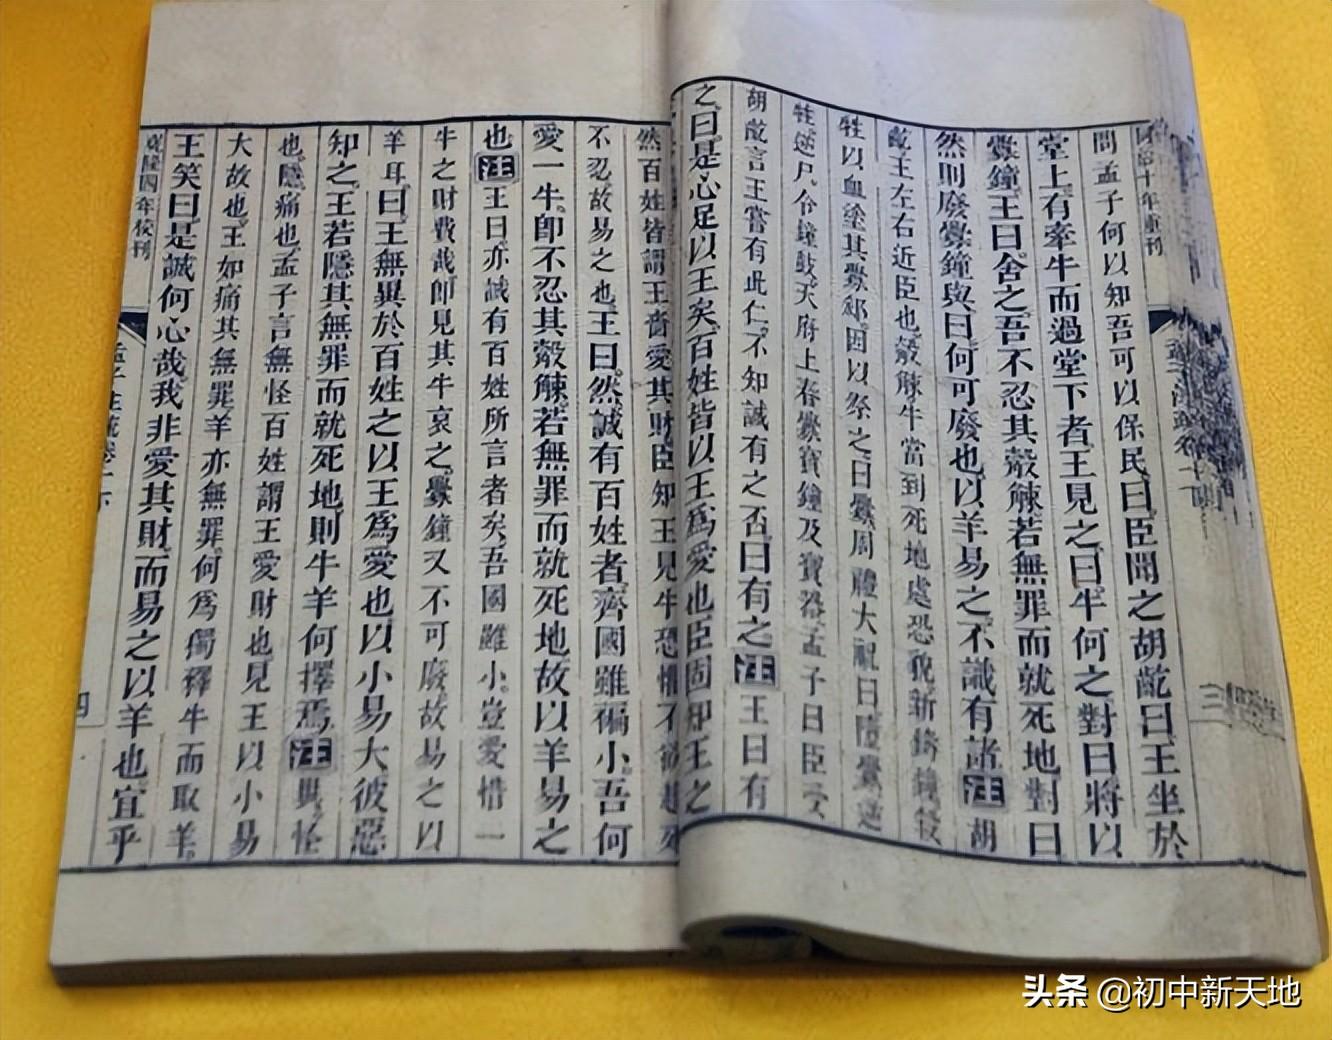 問孟子何以知吾可以保民曰臣聞之胡齕曰王坐於
堂上有牽牛而過堂下者王見之曰牛何之對曰將以
釁鐘王曰舍之吾不忍其觳觫若無罪而就死地對曰
然則廢釁鐘與曰何可廢也以羊易之不識有諸注胡
齕王左右近臣也觳觫牛當到死地處恐貌新鑄鐘殺
牲以血塗其釁郄因以祭之曰釁周禮大祝曰隋釁逆
牲逆尸令鐘鼓天府上春釁寶鐘及寶器孟子曰臣受
胡齕言王嘗有此仁不知誠有之否曰有之注王曰有
之曰是心足以王矣百姓皆以王爲愛也臣固知王之
然百姓皆謂王嗇愛其財臣知王見牛恐懼不欲趨死
不忍故易之也王曰然誠有百姓者齊國雖褊小吾何
愛一牛即不忍其觳觫若無罪而就死地故以羊易之
也注王曰亦誠有百姓所言者矣吾國雖小豈愛惜一
牛之財費哉即見其牛哀之釁鐘又不可廢故易之以
羊耳曰王無異於百姓之以王爲愛也以小易大彼惡
知之王若隱其無罪而就死地則牛羊何擇焉注異怪
也隱痛也孟子言無怪百姓謂王愛財也見王以小易
大故也王如痛其無罪羊亦無罪何爲獨釋牛而取羊
王笑曰是誠何心哉我非愛其財而易之以羊也宜乎
乾隆四年校刊
四
头条 @初中新天地